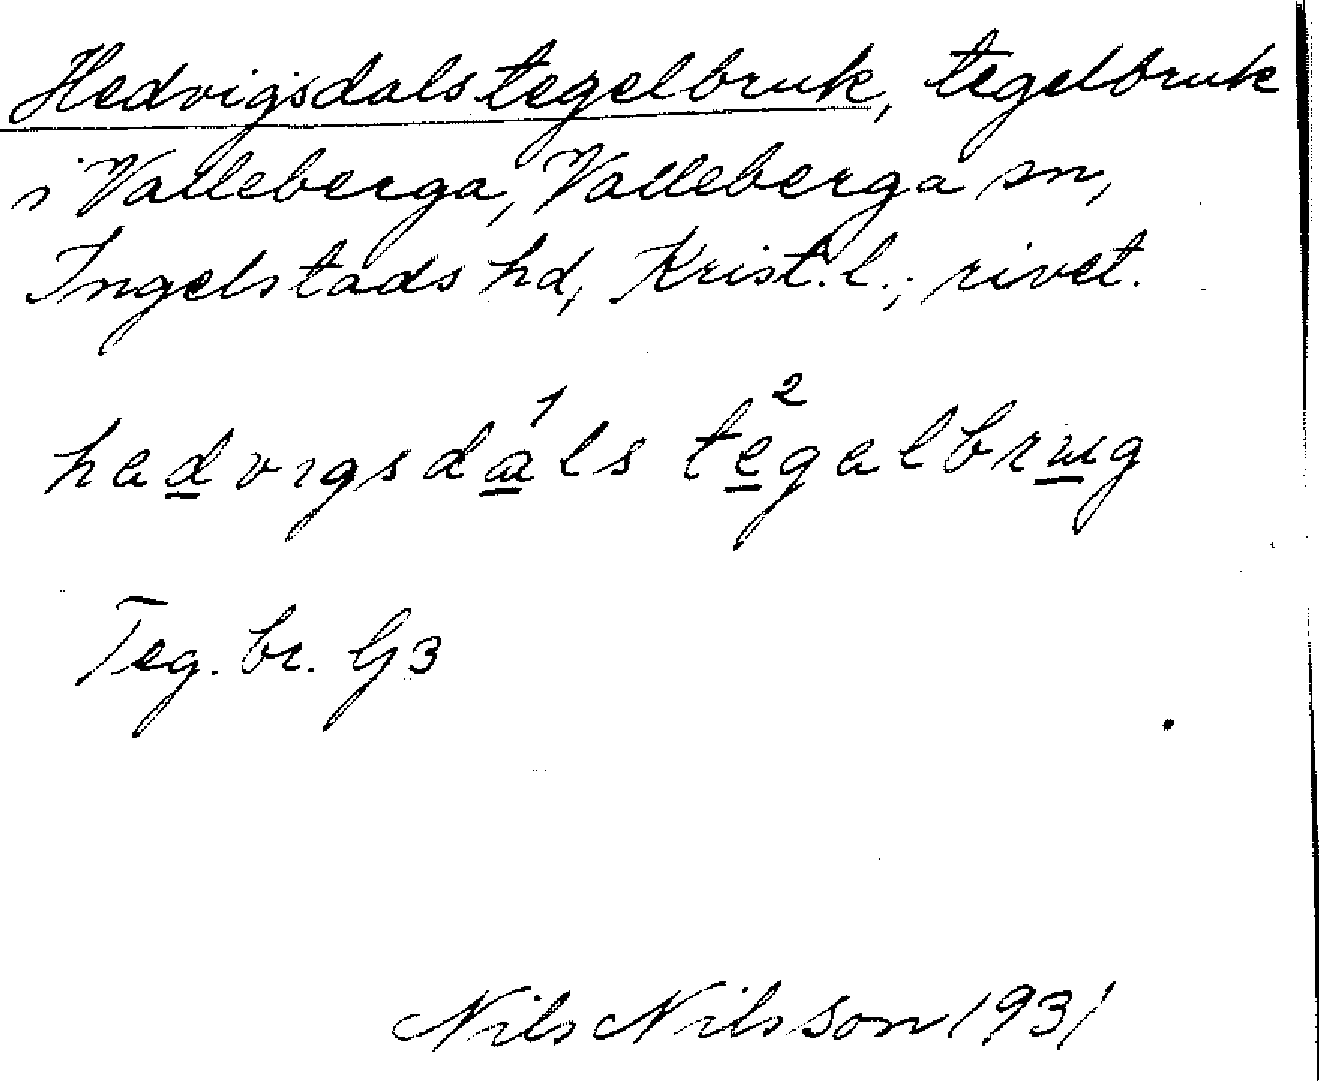 Hedvigsdals tegelbruk, tegelbruk
i Valleberga, Valleberga sn,
Ingelstads hd, Krist. l.; rivet.
hedvıgsdα1ls te2gəlbrug
Teg. br. G3
Nils Nilsson 1931